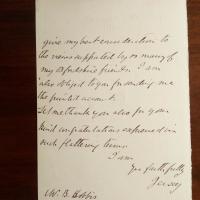 give my best consideration to
the views supported by so many of
my Oxfordshire friends. I am
also obliged to you for sending me
the printed account.
Let me thank you also for your
kind congratulations expressed in
such flattering terms.
I am
Yrs faithfully
Jersey
W. B.